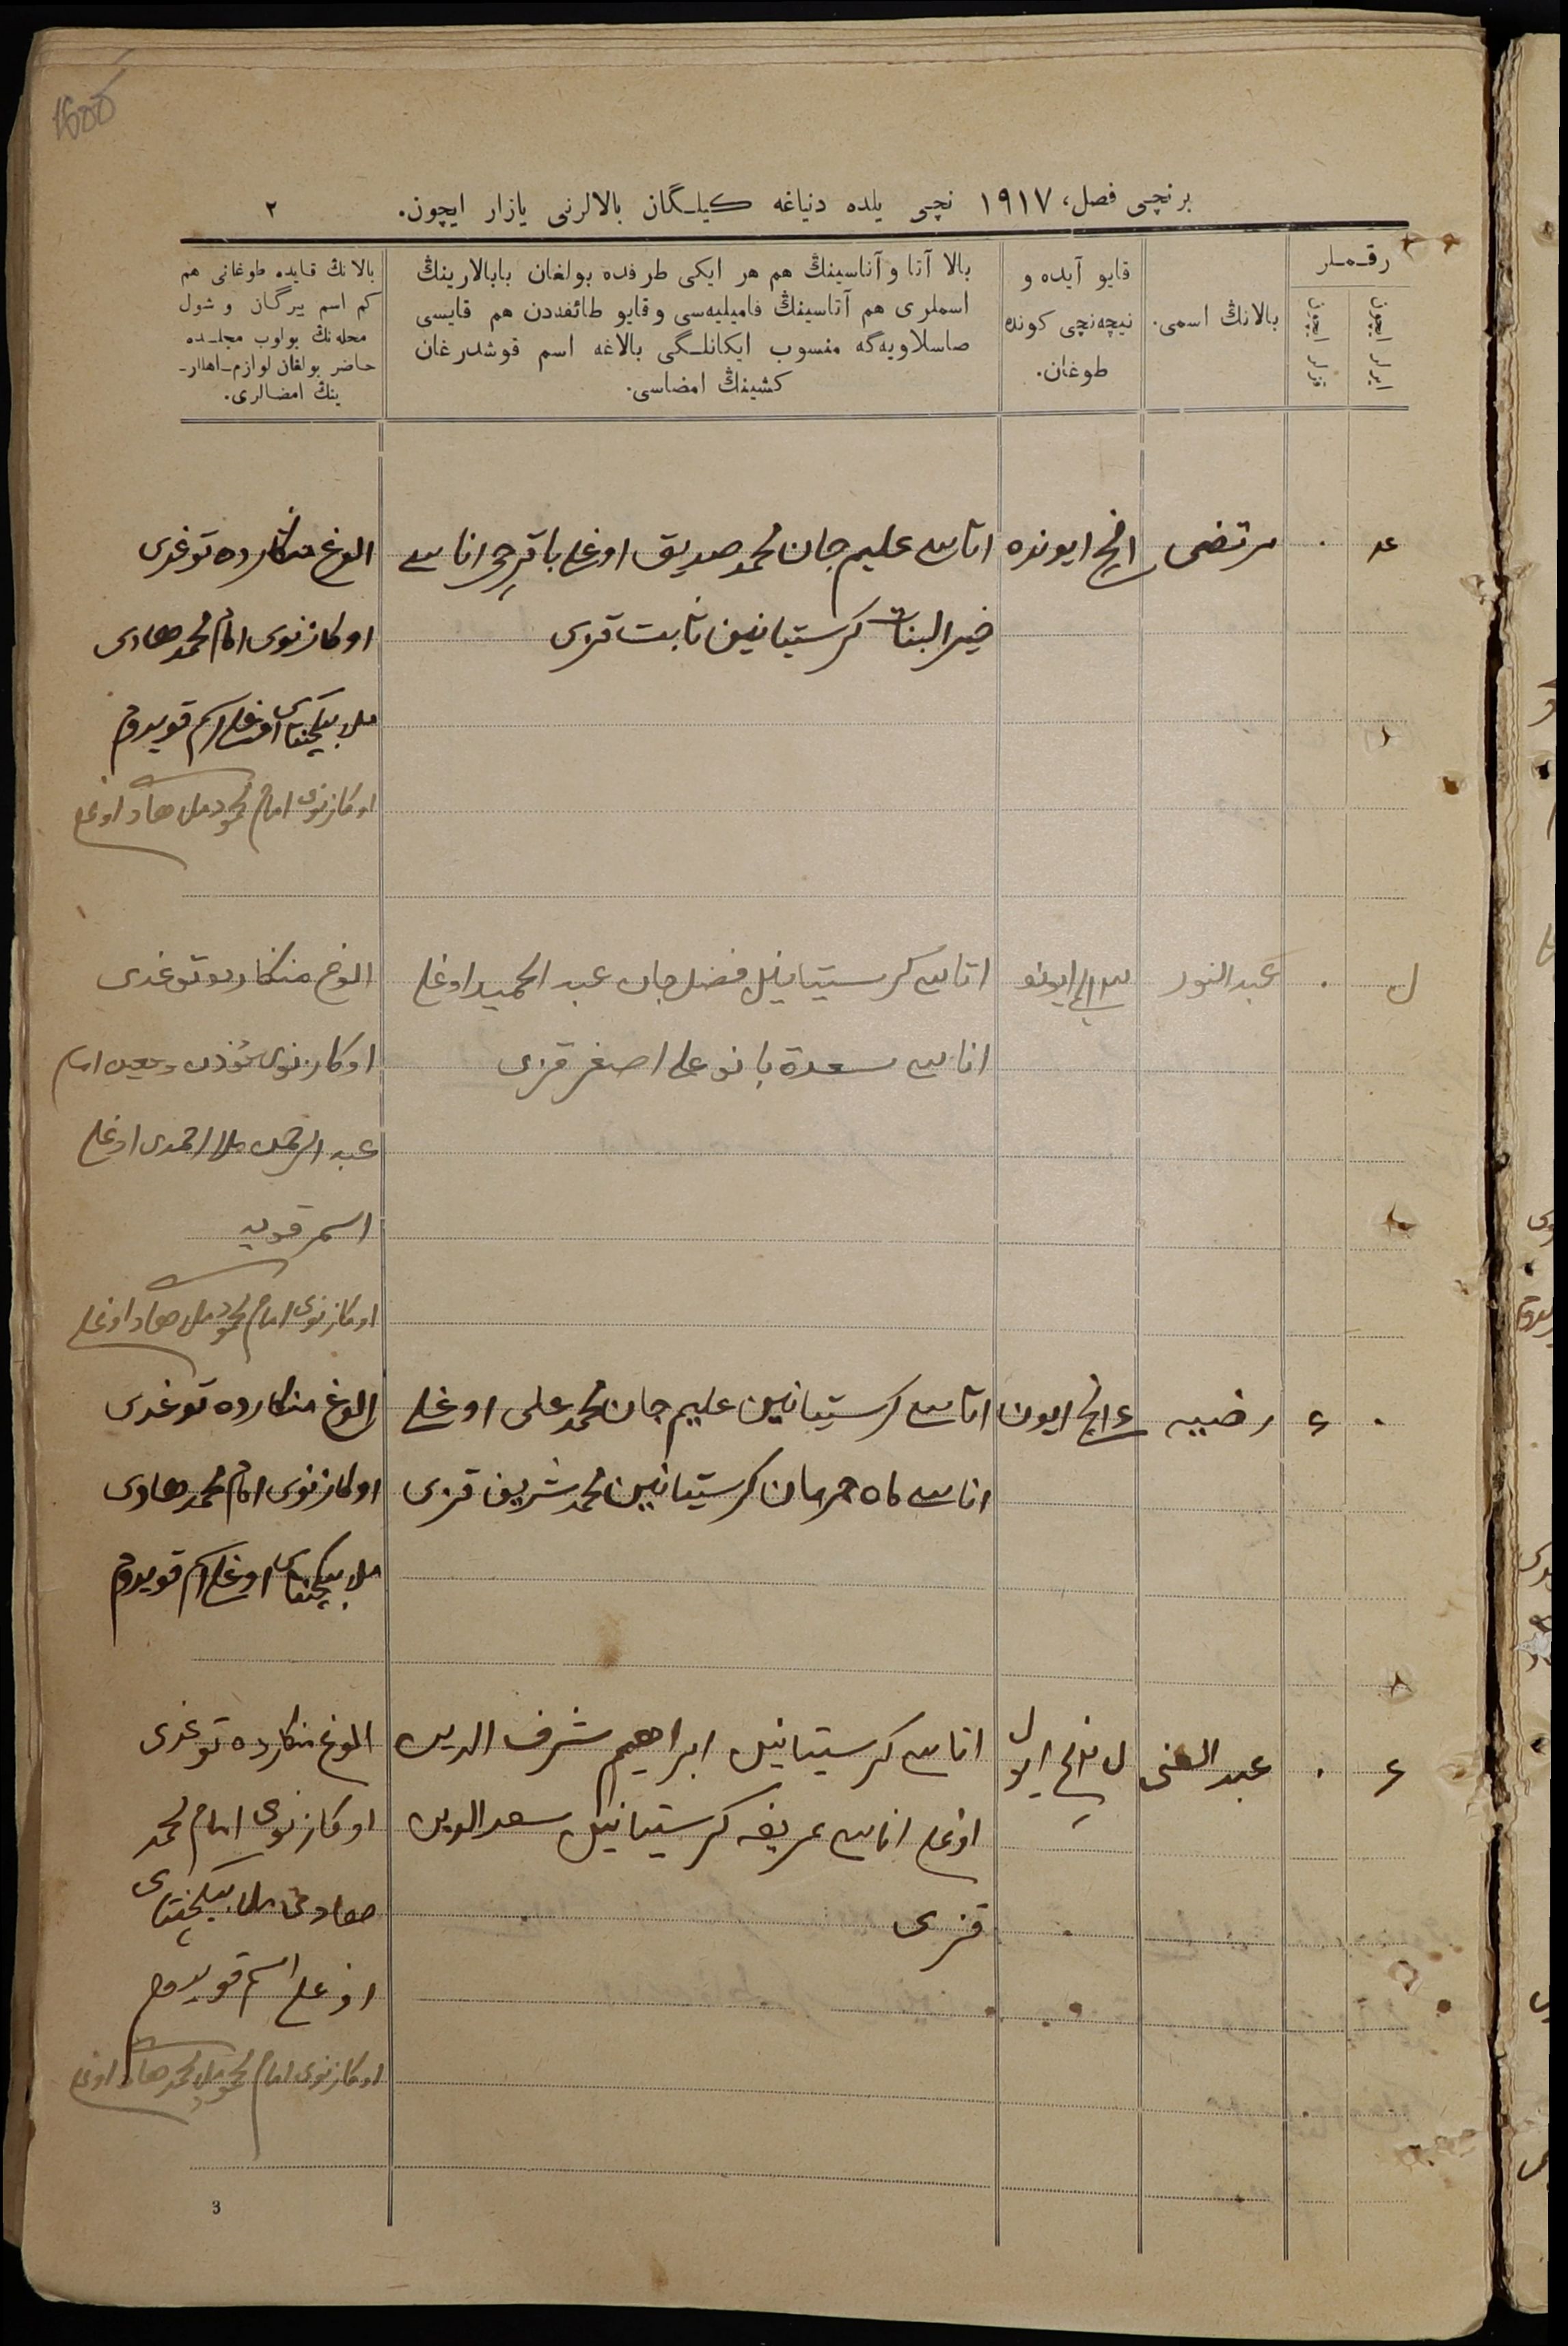 1600
برنچی فصل، ١٩١٧ نچی یلده دنیاغه کیلـگان بالالرنی یازار ایچون.
٢
رقـمـلر
ایرلر ایچون
قزلر ایچون
بالانڭ اسمی.
قایو آیده و
نیچه‌نچی کونده
طوغان.
بالا آتا و آناسینڭ هم هر ایکی طرفده بولغان بابالارینڭ
اسملری هم آتاسینڭ فامیلیه‌سی و قایو طائفه‌دن هم قایسی
صاسلاویه‌گه منسوب ایکانلـگی بالاغه اسم قوشدرغان
کشینڭ امضاسی.
بالانڭ قایده طوغانی هم
کم اسم بیرگان و شول
محله‌نڭ بولوب مجلـده
حاضر بولغان لوازم اهالار
ینڭ امضالری.
مرتضی
ایونده
اتاسی علیم جان محمد صدیق اوغلی باقرچی اناسی
الوغ منکارده توغدی
خیر البنات کرستیانین ثابت قزی
اوکازنوی امام محمد هادی
ملا بیکچنتای اوغلی اسم قویدوم
اوکازنوی امام محمود ملا هاد اوغلی
عبدالنور
اتاسی کرستیانین فضل جان عبد الحمید اوغلی
الوغ منکارده توغدی
اناسی سعدة بانو علی اصغر قزی
اوکازنوی مؤذن و معین امام
عبد الرحمن ملا احمدی اوغلی
اسم قویه
اوکازنوی امام محمود ملا هاد اوغلی
٠ ٤ رضیه
ایون
اتاسی کرستیانین علیم جان محمد علی اوغلی
الوغ منکارده توغدی
اناسی ماه مهربان کرستیانین محمد شریف قزی
اوکازنوی امام محمد هادی
ملا بیکچنتای اوغلی اسم قویدوم
٤ ٠ عبد الغنی
اتاسی کرستیانین ابراهیم شرف الدین
الوغ منکارده توغدی
اوغلی اناسی عریفه کرستیانین سعد الدین
اوکازنوی امام محمد
قزی
هادی ملا بیکچنتای
اوغلی اسم قویدوم
اوکازنوی امام محمود ملا محمد هاد اوغلی
3